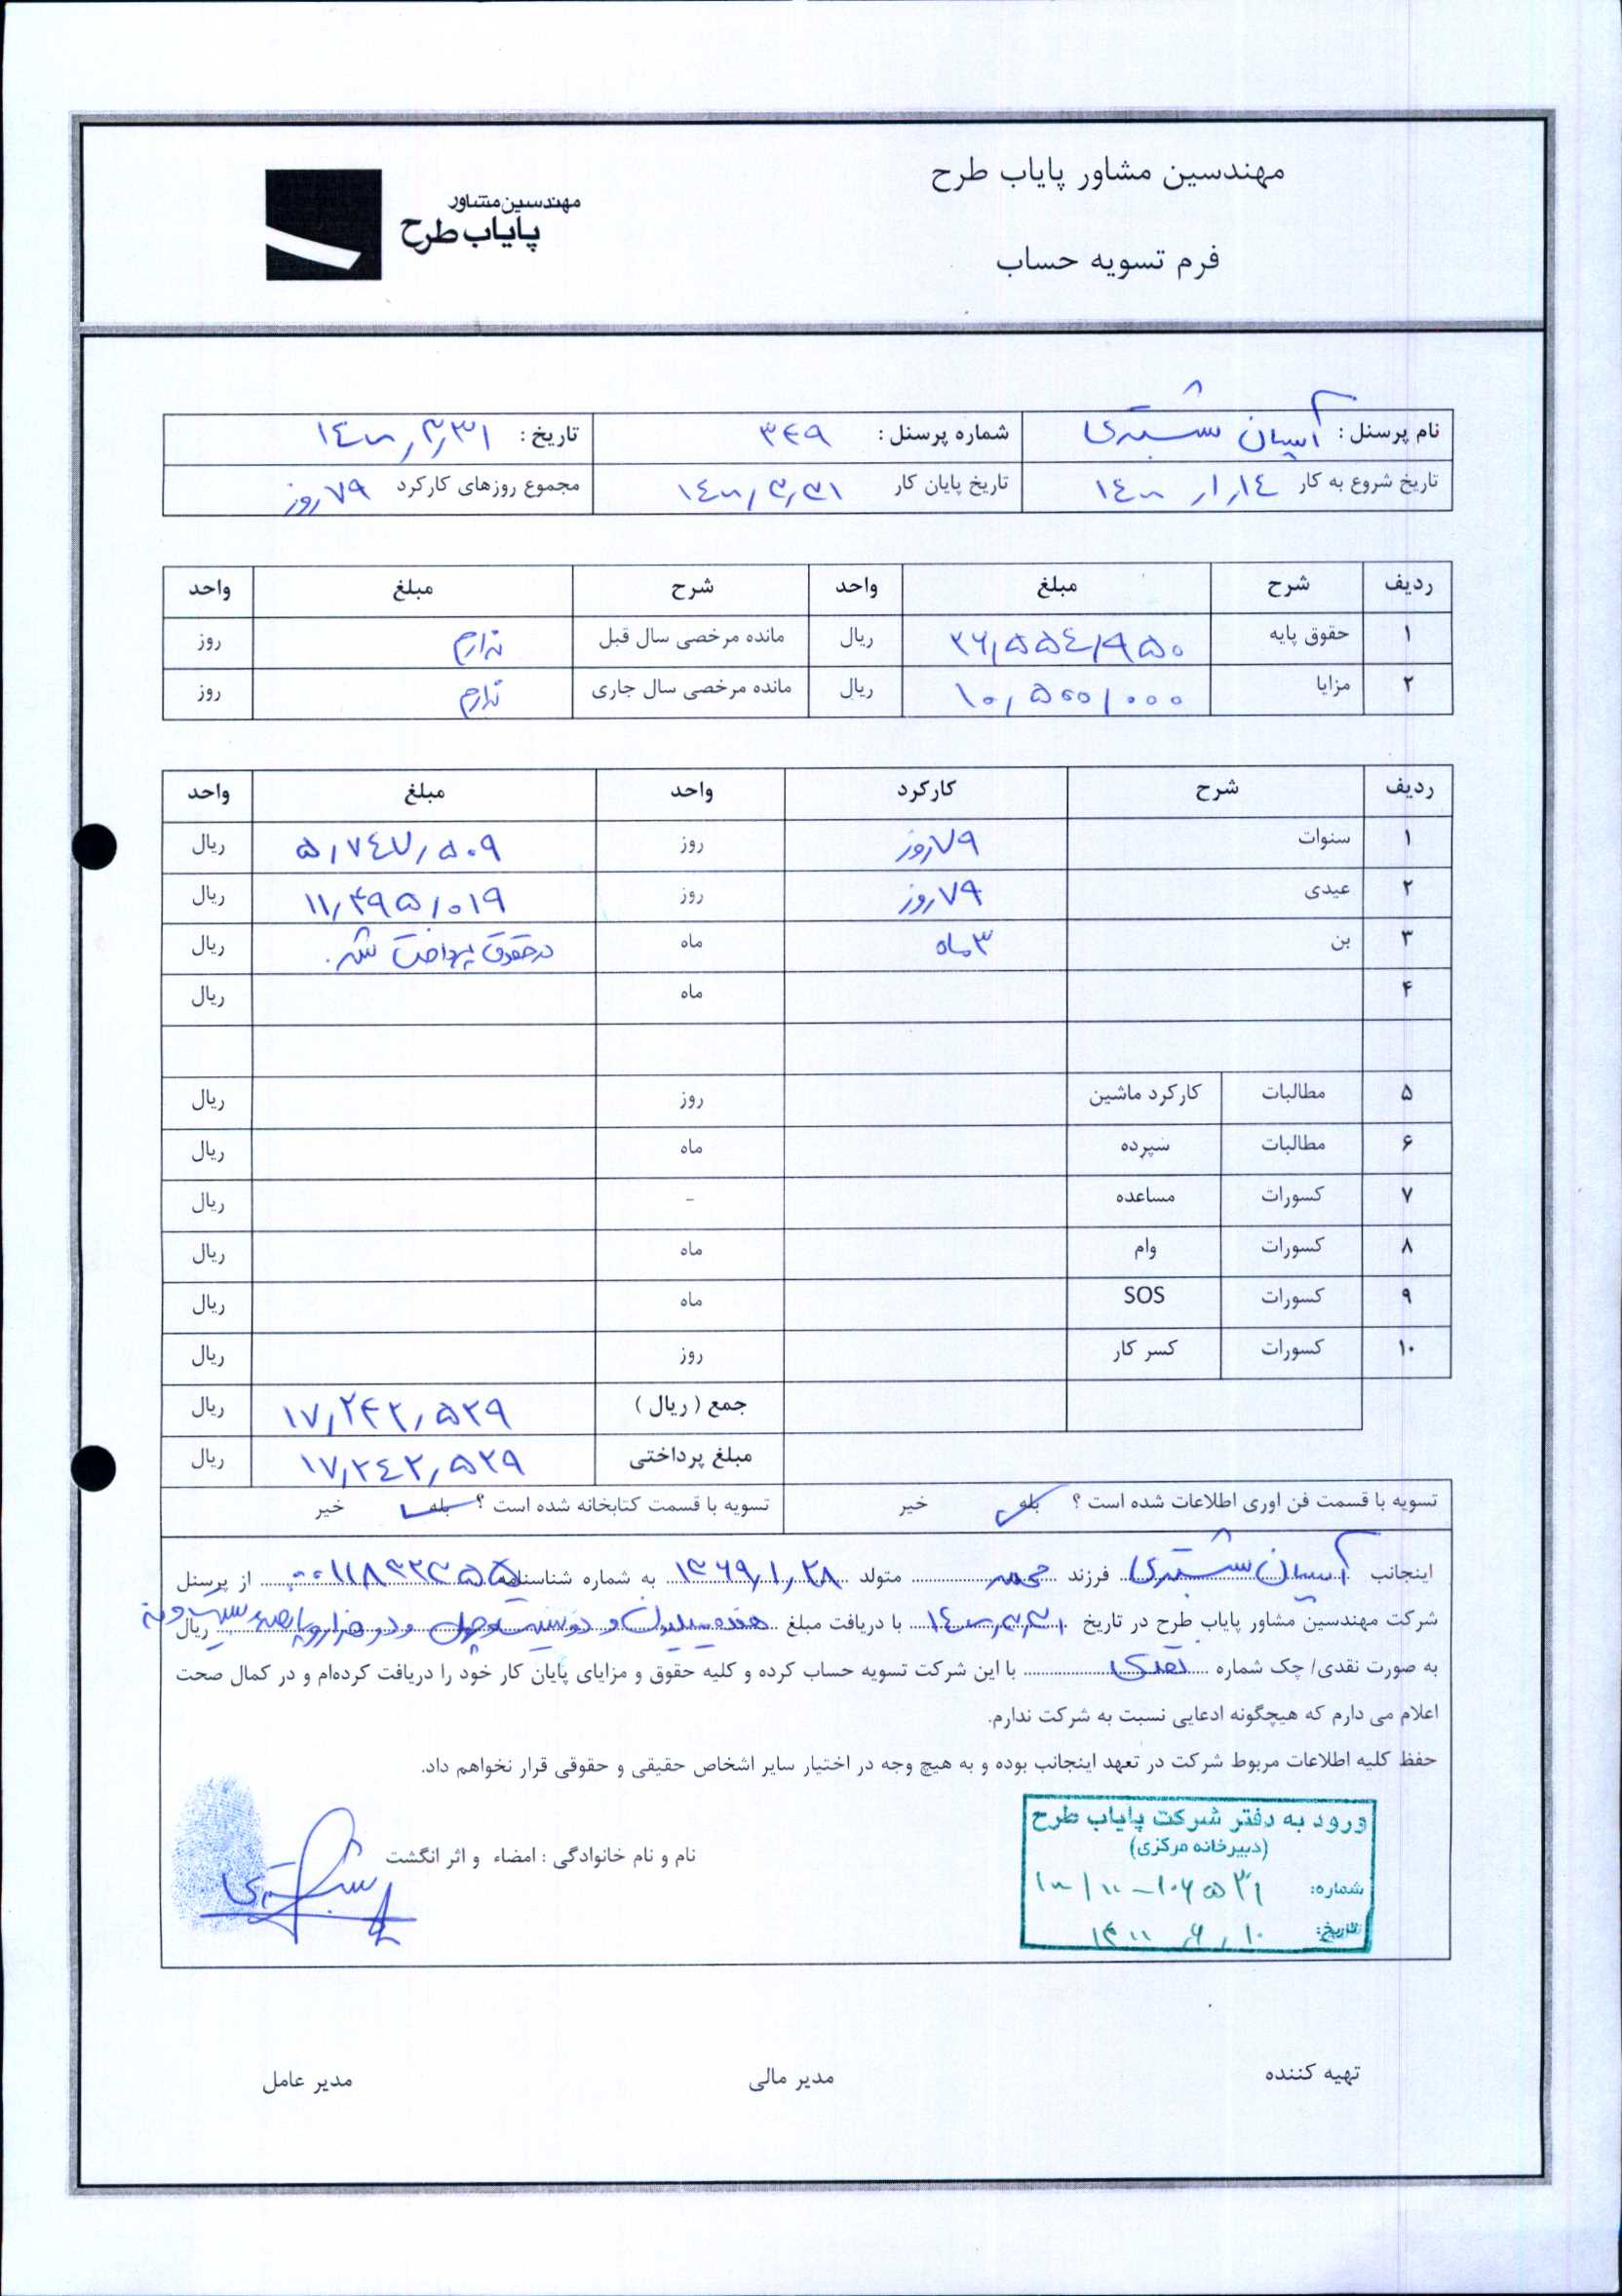 مهندسین مشاور پایاب طرح
مهندسین مشاور
پایاب طرح
فرم تسویه حساب
نام پرسنل : آسیان شبستری شماره پرسنل : ۳۴۹ تاریخ : ۱۴۰۰/۳/۳۱
تاریخ شروع به کار ۱۴۰۰/۱/۱۴ تاریخ پایان کار ۱۴۰۰/۳/۳۱ مجموع روزهای کارکرد ۷۹ روز
ردیف شرح مبلغ واحد شرح مبلغ واحد
۱ حقوق پایه ۲۶,۵۵۴,۹۵۰ ریال مانده مرخصی سال قبل ندارم روز
۲ مزایا ۱۰,۵۰۰,۰۰۰ ریال مانده مرخصی سال جاری ندارم روز
ردیف شرح کارکرد واحد مبلغ واحد
۱ سنوات ۷۹ روز روز ۵,۷۴۷,۵۰۹ ریال
۲ عیدی ۷۹ روز روز ۱۱,۴۹۵,۰۱۹ ریال
۳ بن ۳ ماه ماه در حقوق پرداخت شد. ریال
۴ ماه ریال
۵ مطالبات کارکرد ماشین روز ریال
۶ مطالبات سپرده ماه ریال
۷ کسورات مساعده - ریال
۸ کسورات وام ماه ریال
۹ کسورات SOS ماه ریال
۱۰ کسورات کسر کار روز ریال
جمع ( ریال ) ۱۷,۲۴۲,۵۲۹ ریال
مبلغ پرداختی ۱۷,۲۴۲,۵۲۹ ریال
تسویه با قسمت فن اوری اطلاعات شده است ؟ بله خیر تسویه با قسمت کتابخانه شده است ؟ بله خیر
اینجانب آسیان شبستری فرزند محمد متولد ۱۳۶۹/۱/۲۸ به شماره شناسنامه ۰۰۱۱۸۳۲۳۵۵ از پرسنل
شرکت مهندسین مشاور پایاب طرح در تاریخ ۱۴۰۰/۳/۳۱ با دریافت مبلغ هفده میلیون و دویست و چهل و دو هزار و پانصد و بیست و نه ریال
به صورت نقدی/ چک شماره نقدی با این شرکت تسویه حساب کرده و کلیه حقوق و مزایای پایان کار خود را دریافت کرده‌ام و در کمال صحت
اعلام می دارم که هیچگونه ادعایی نسبت به شرکت ندارم.
حفظ کلیه اطلاعات مربوط شرکت در تعهد اینجانب بوده و به هیچ وجه در اختیار سایر اشخاص حقیقی و حقوقی قرار نخواهم داد.
ورود به دفتر شرکت پایاب طرح
(دبیرخانه مرکزی)
نام و نام خانوادگی : امضاء و اثر انگشت
شبستری
شماره:
تاریخ: ۱۴۰۰/۶/۱۰
تهیه کننده مدیر مالی مدیر عامل